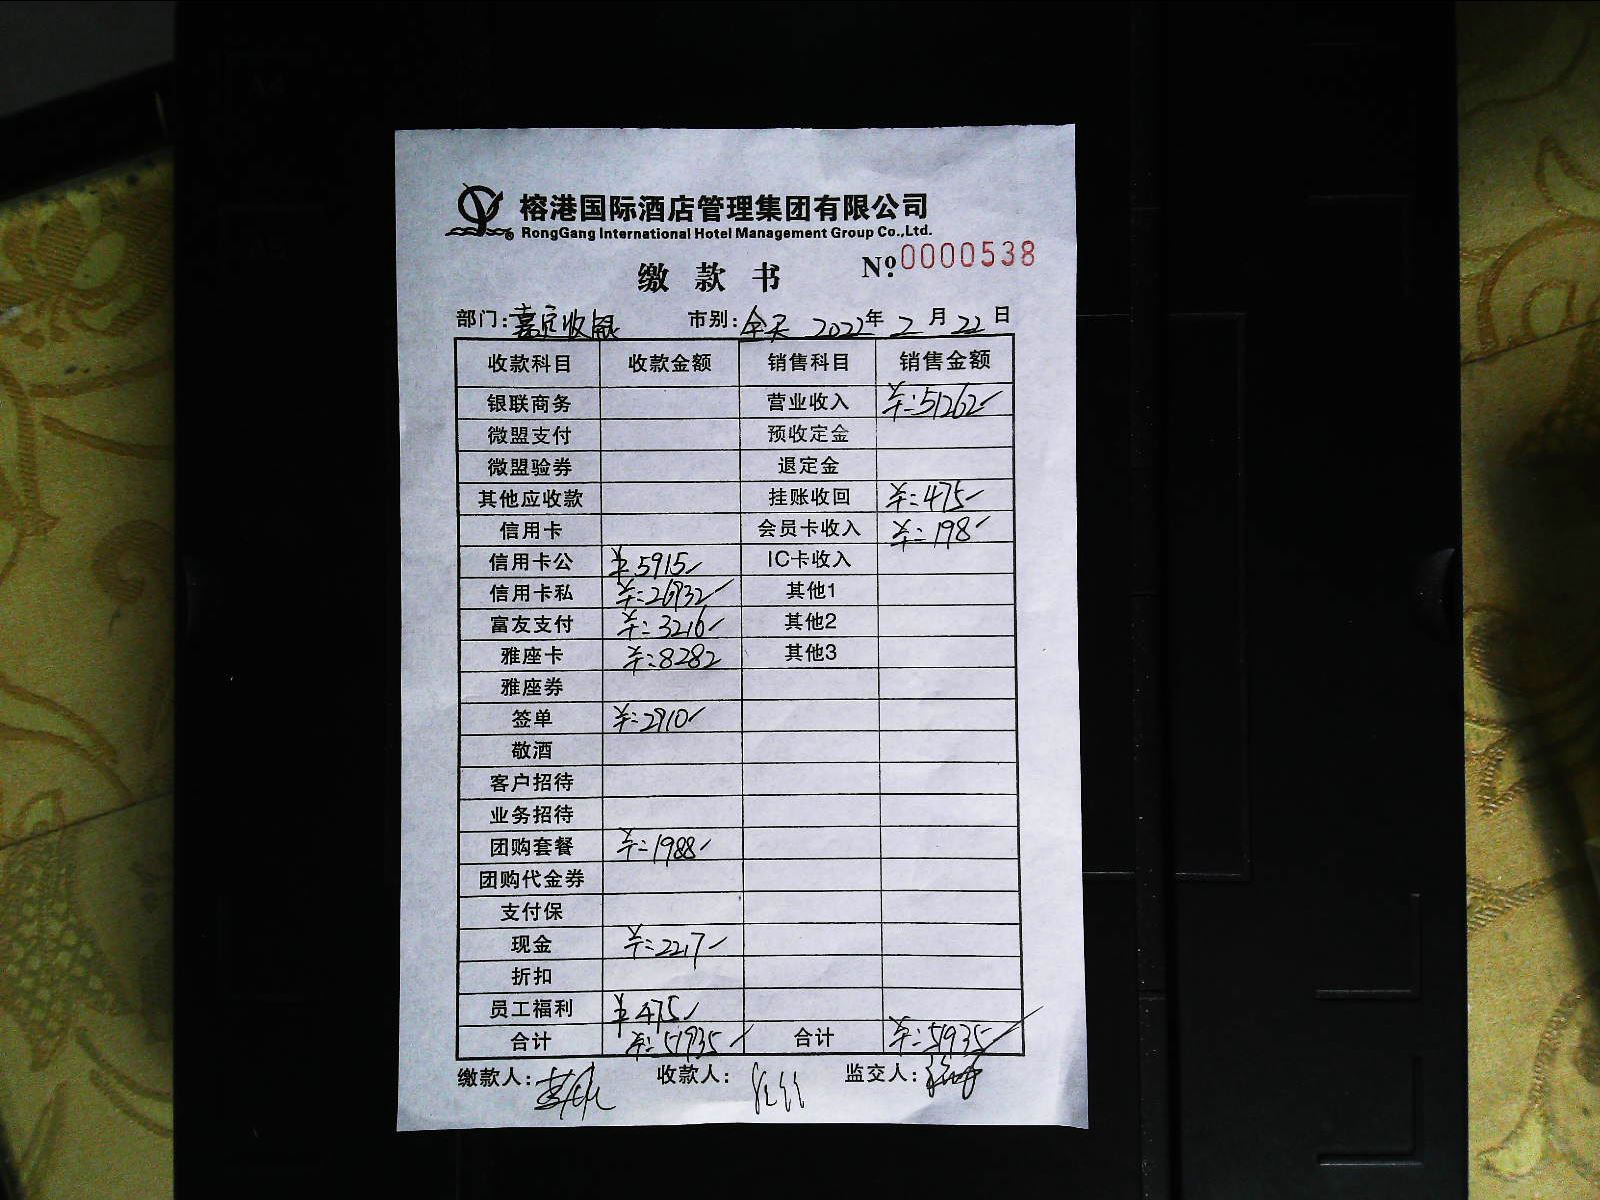 榕港国际酒店管理集团有限公司
RongGang International Hotel Management Group Co.,Ltd.
缴款书 Nº 0000538
部门:嘉定收银 市别:全天 2022年2月22日
收款科目 收款金额 销售科目 销售金额
银联商务 营业收入 ¥:51262
微盟支付 预收定金
微盟验券 退定金
其他应收款 挂账收回 ¥:475
信用卡 会员卡收入 ¥:198
信用卡公 ¥5915 IC卡收入
信用卡私 ¥:26932 其他1
富友支付 ¥:3216 其他2
雅座卡 ¥:8282 其他3
雅座券
签单 ¥:2910
敬酒
客户招待
业务招待
团购套餐 ¥:1988
团购代金券
支付保
现金 ¥:2217
折扣
员工福利 ¥475
合计 ¥:51935 合计 ¥:51935
缴款人: 收款人: 监交人: